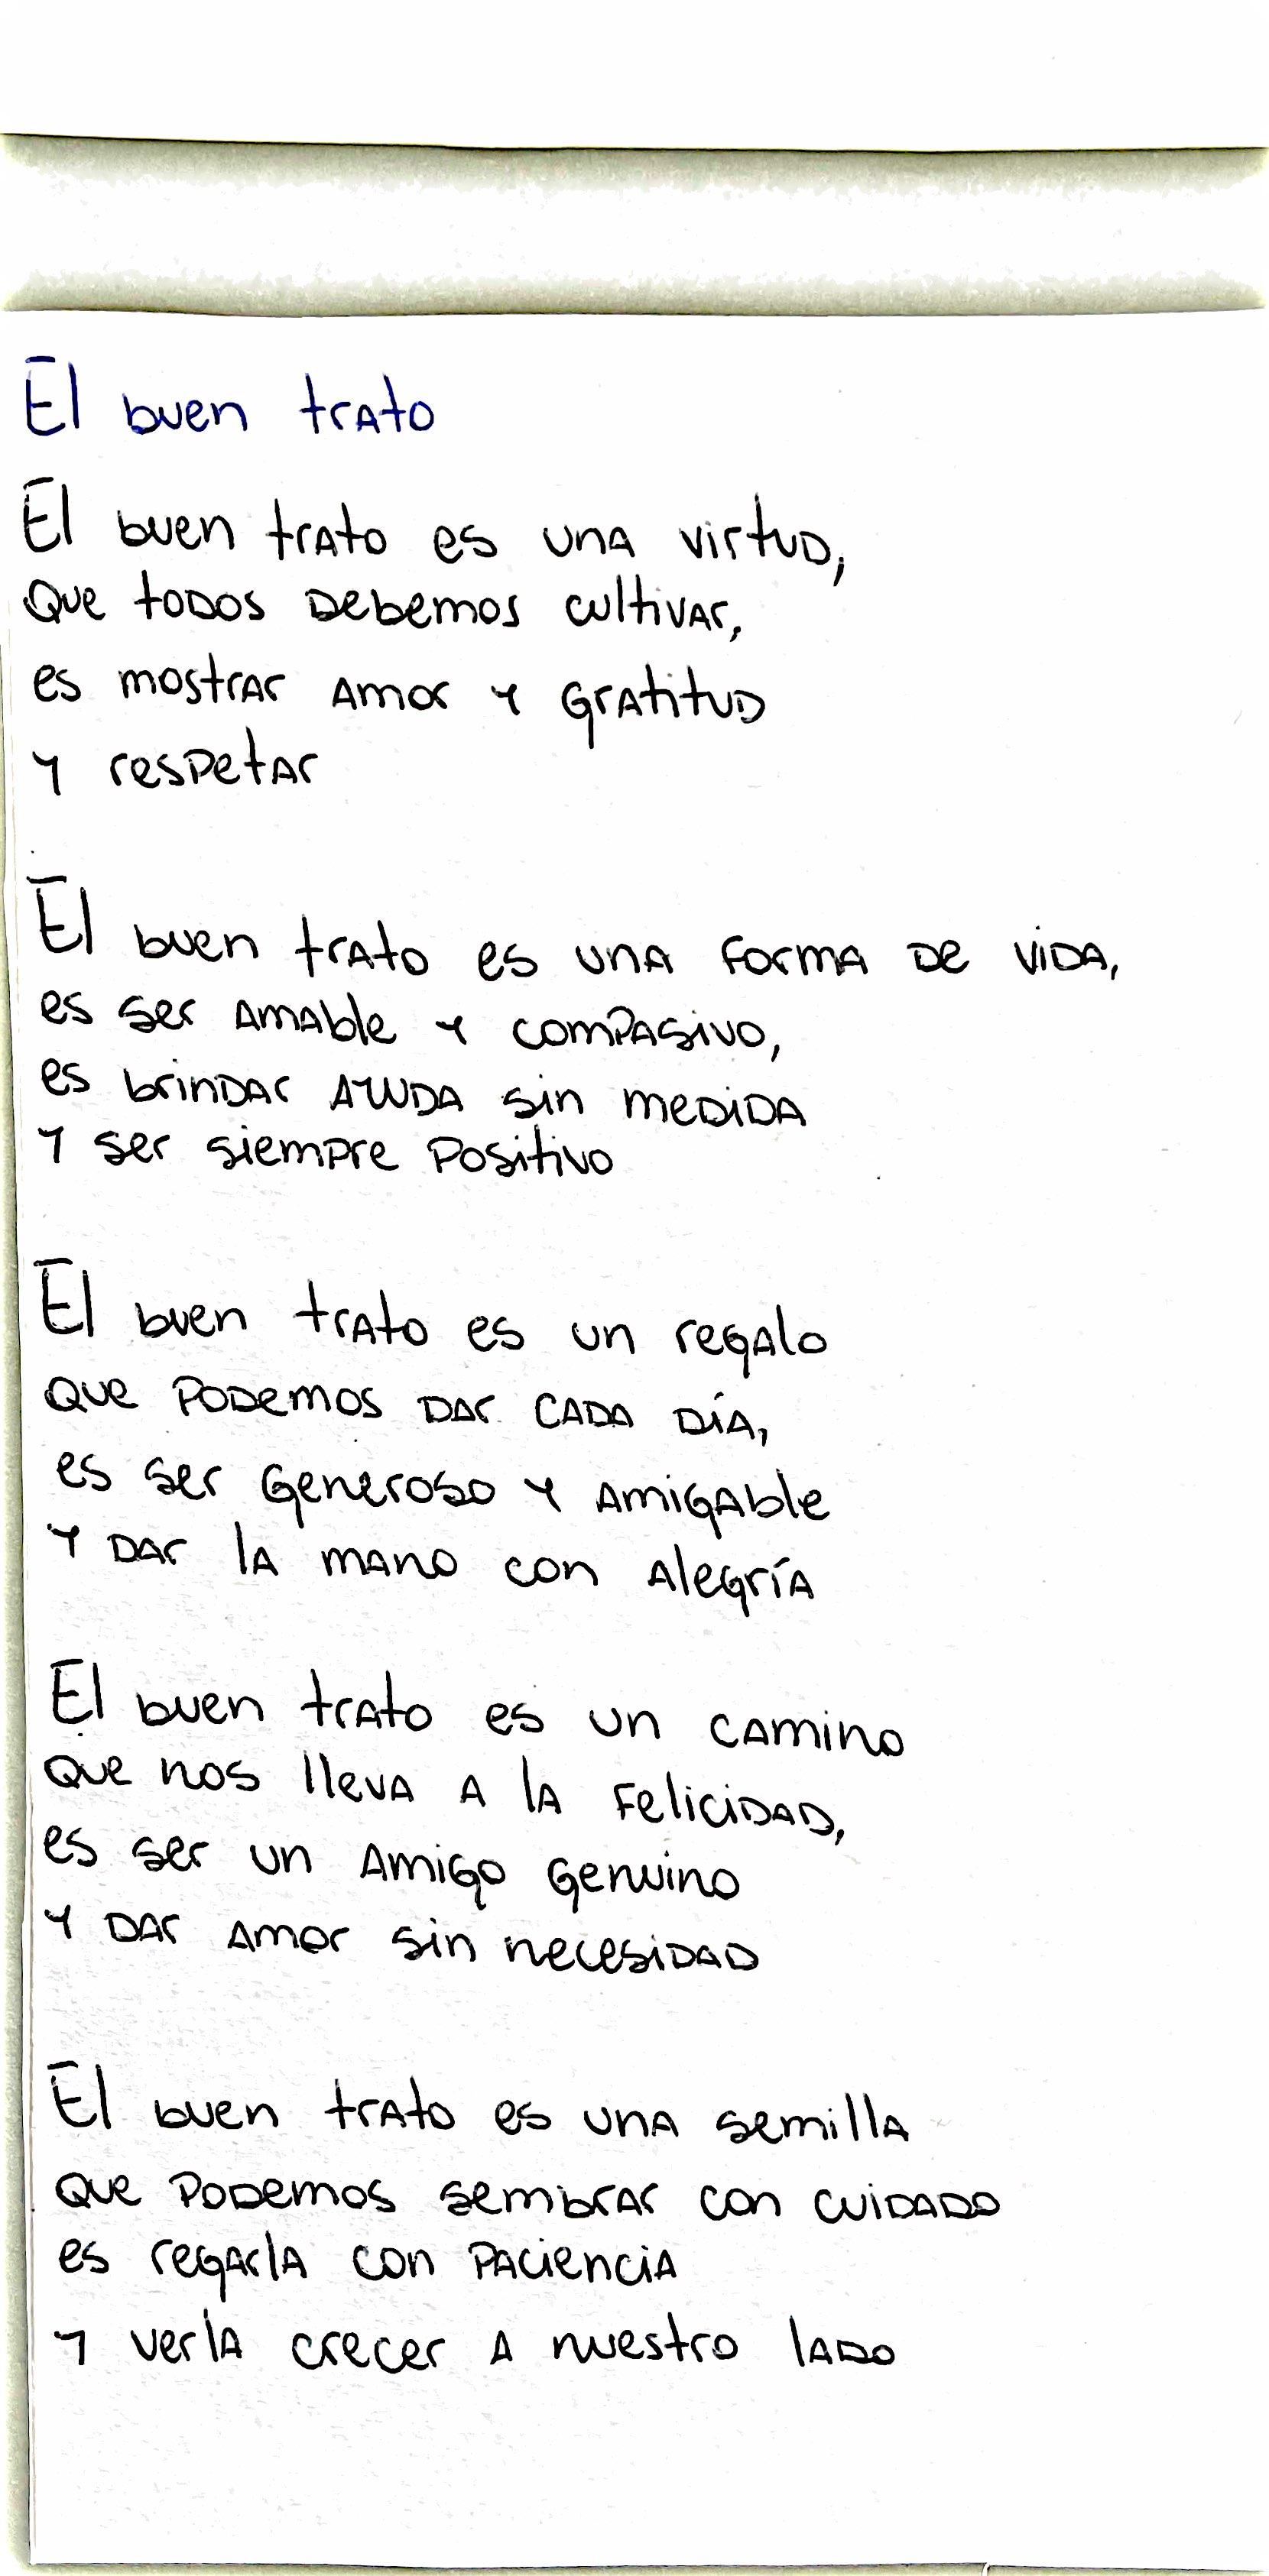 El buen trato
El buen trato es una virtud,
Que todos debemos cultivar,
es mostrar amor y gratitud
y respetar
El buen trato es una forma de vida,
es ser amable y compasivo,
es brindar ayuda sin medida
y ser siempre positivo
El buen trato es un regalo
que podemos dar cada día,
es ser generoso y amigable
y dar la mano con alegría
El buen trato es un camino
que nos lleva a la felicidad,
es ser un amigo genuino
y dar amor sin necesidad
El buen trato es una semilla
que podemos sembrar con cuidado
es regarla con paciencia
y verla crecer a nuestro lado